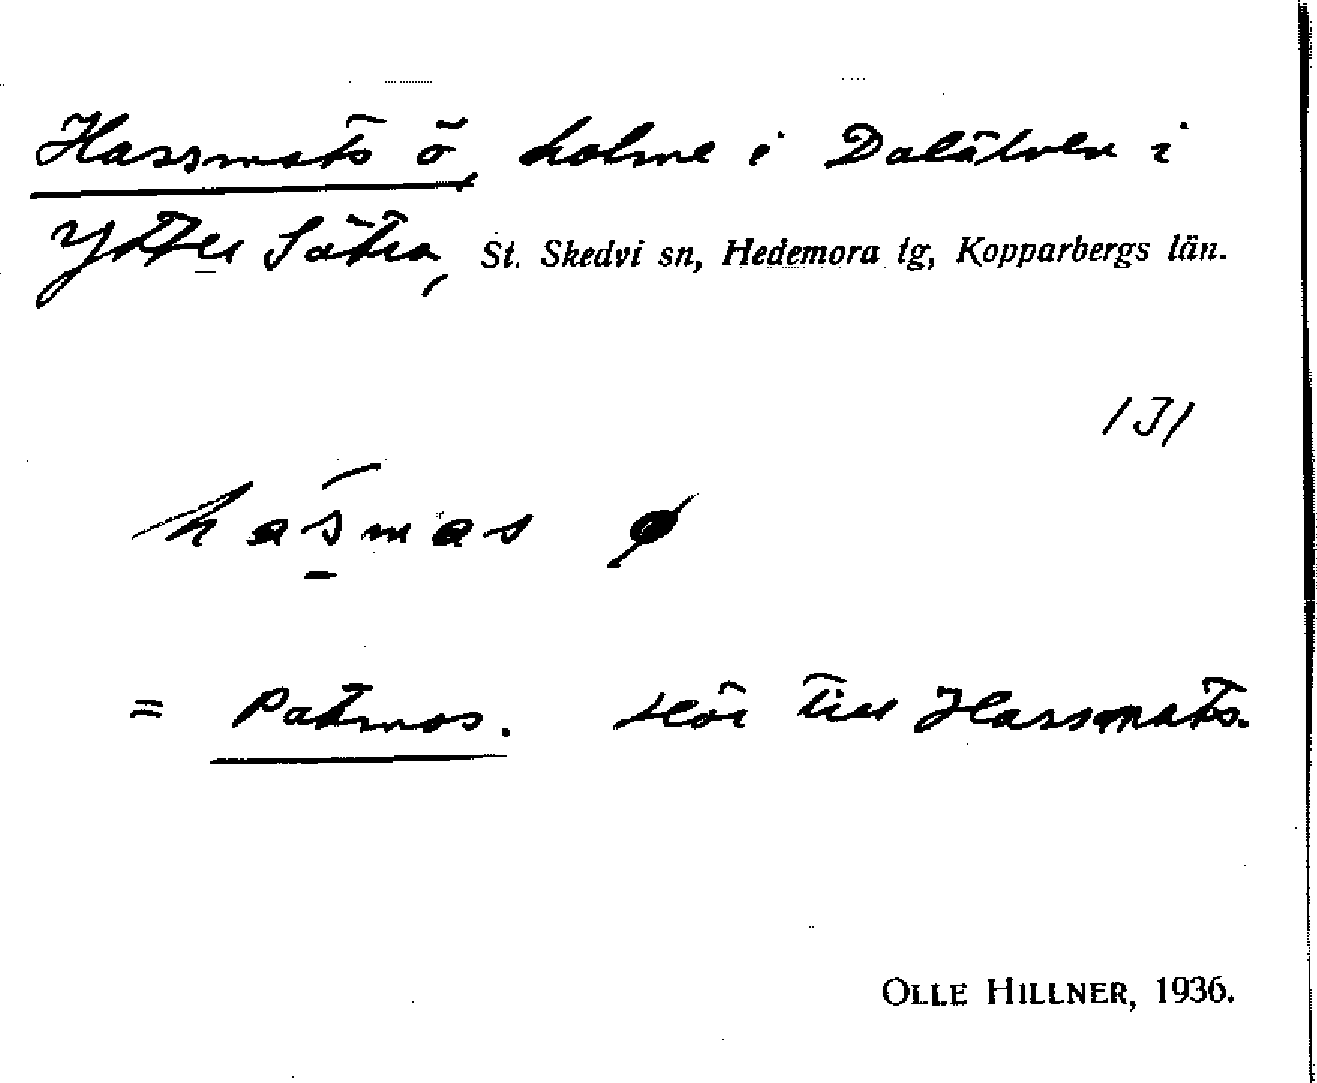 Hassmats ö, holme i Dalälven i
Ytter Sätra, St. Skedvi sn, Hedemora tg, Kopparbergs län.
hasmas ø
= Patmos. Hör till Hassmats.
OLLE HILLNER, 1936.